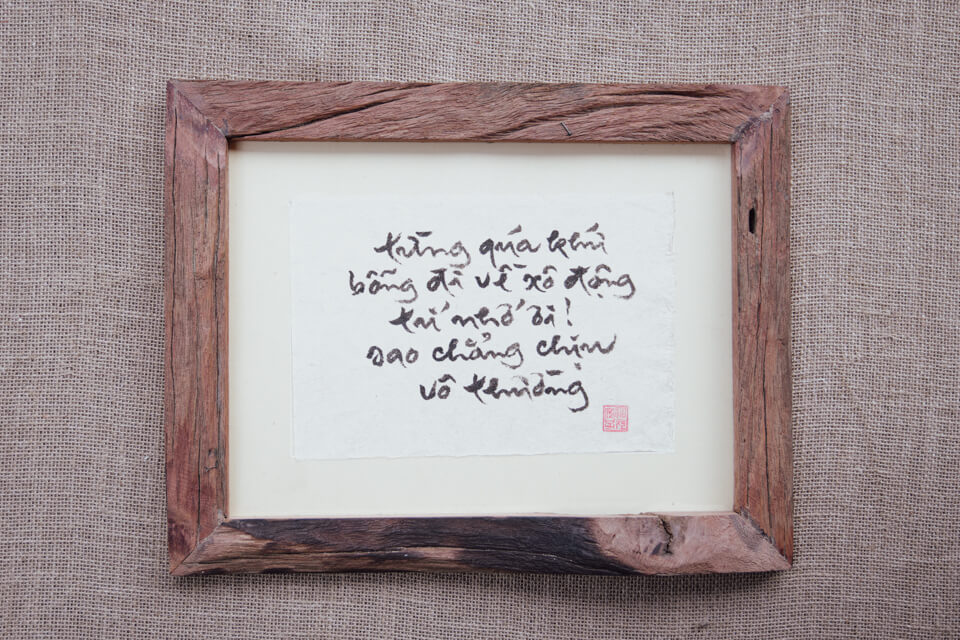 từng quá khứ
bỗng đi về xô động
trí nhớ ơi!
sao chẳng chịu
vô thường